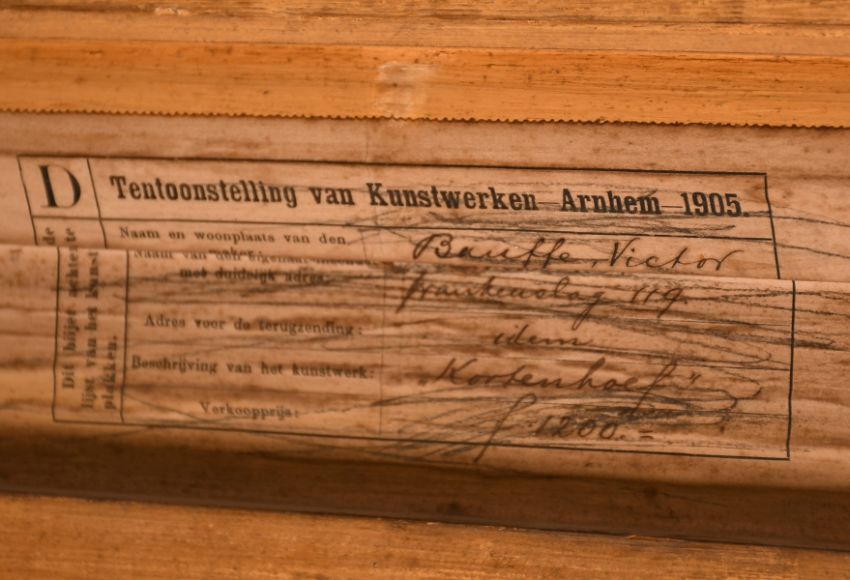 D
Tentoonstelling van Kunstwerken Arnhem 1905.
Naam en woonplaats van den
Bauffe, Victor
Naam van den
met duidelijk adres.
Frankenslag 119
Adres voor de terugzending:
idem
Beschrijving van het kunstwerk:
"Kortenhoef"
Verkoopprijs:
f 1200.=
Dit biljet achter
de
te
lijst van het kunst
plakken.